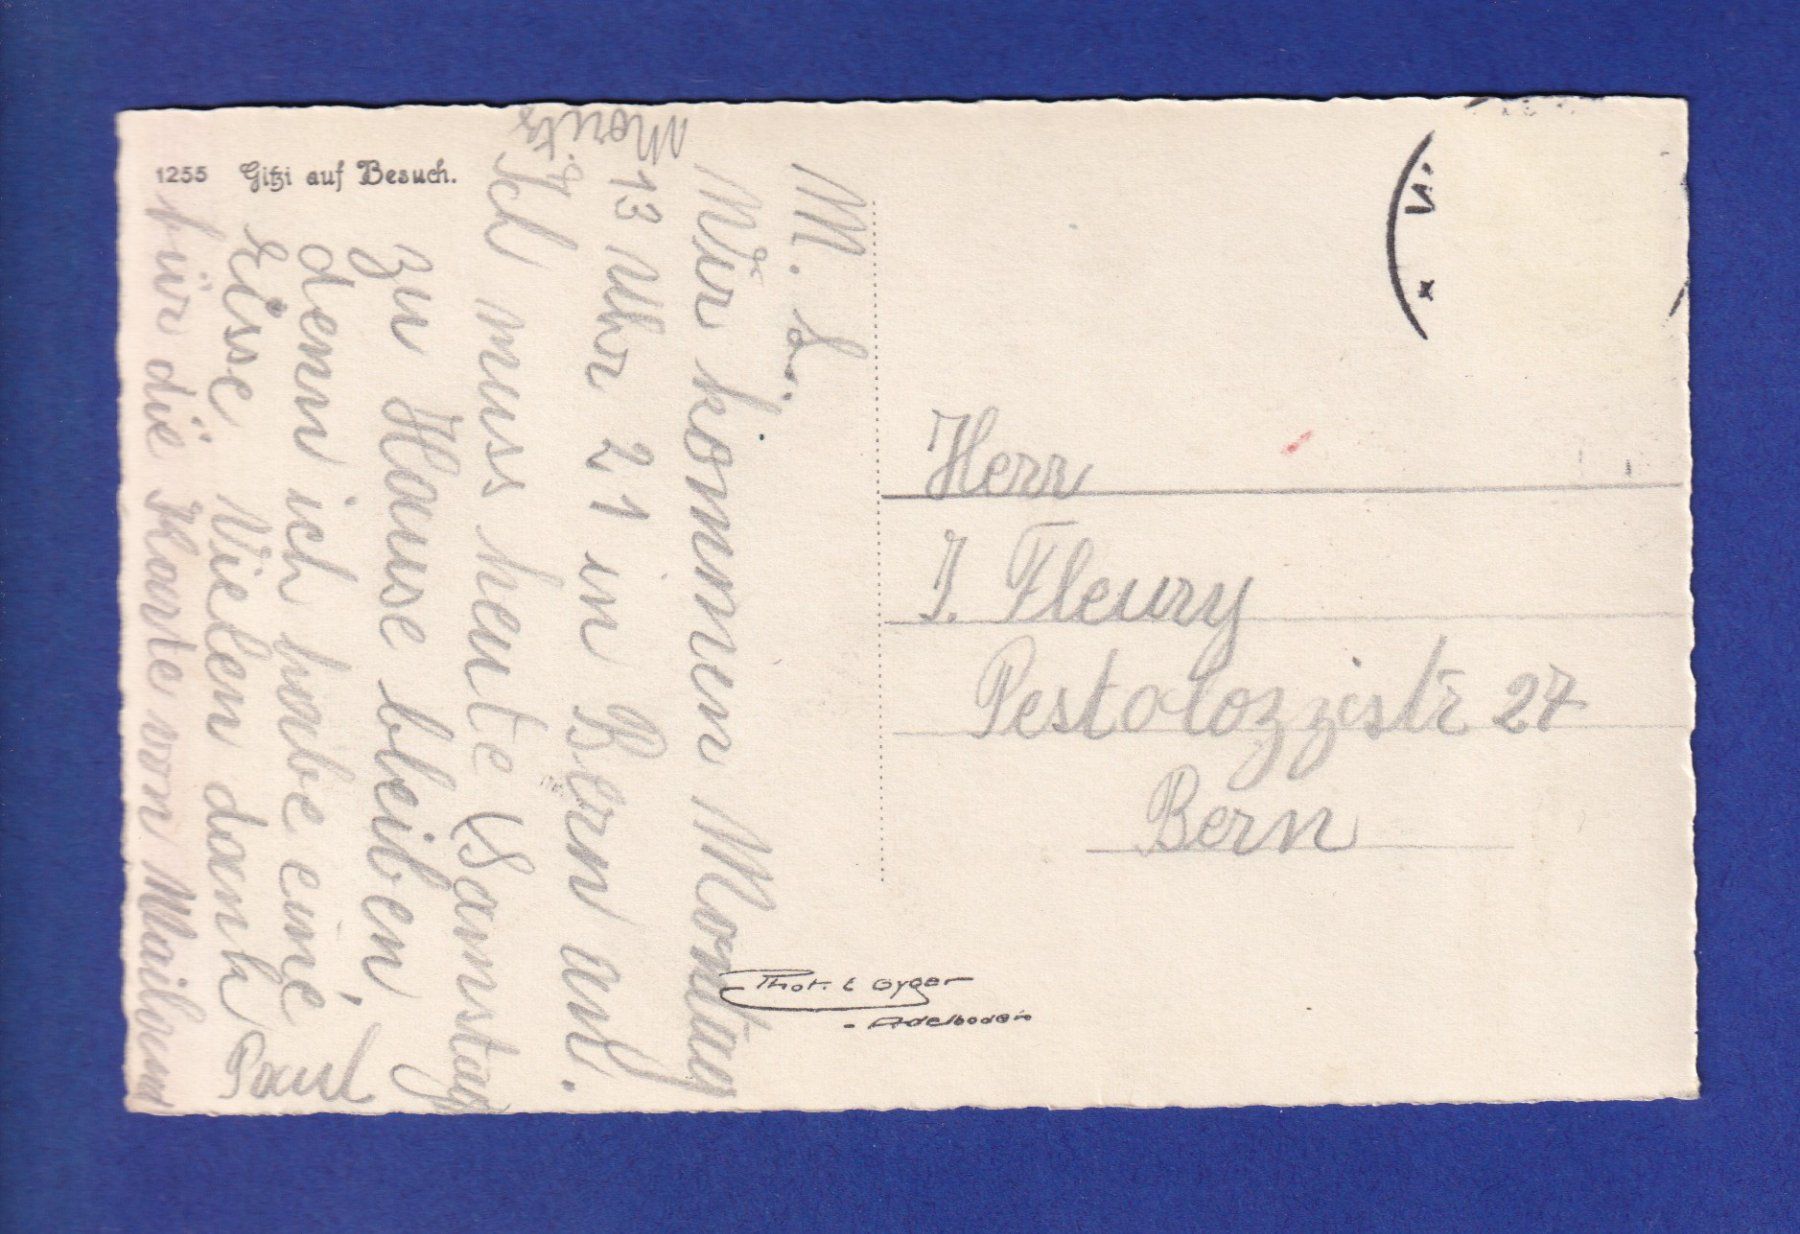 1255 Gitzi auf Besuch.
M. L.
Wir kommen Montag
13 Uhr 21 in Bern an.
Ich muss heute Samstag
zu Hause bleiben,
denn ich habe eine
Eisse. Vielen dank
für die Karte von Mailand
Paul
Moritz
Herr
J. Fleury
Pestalozzistr 27
Bern
Phot. E Gyger
- Adelboden